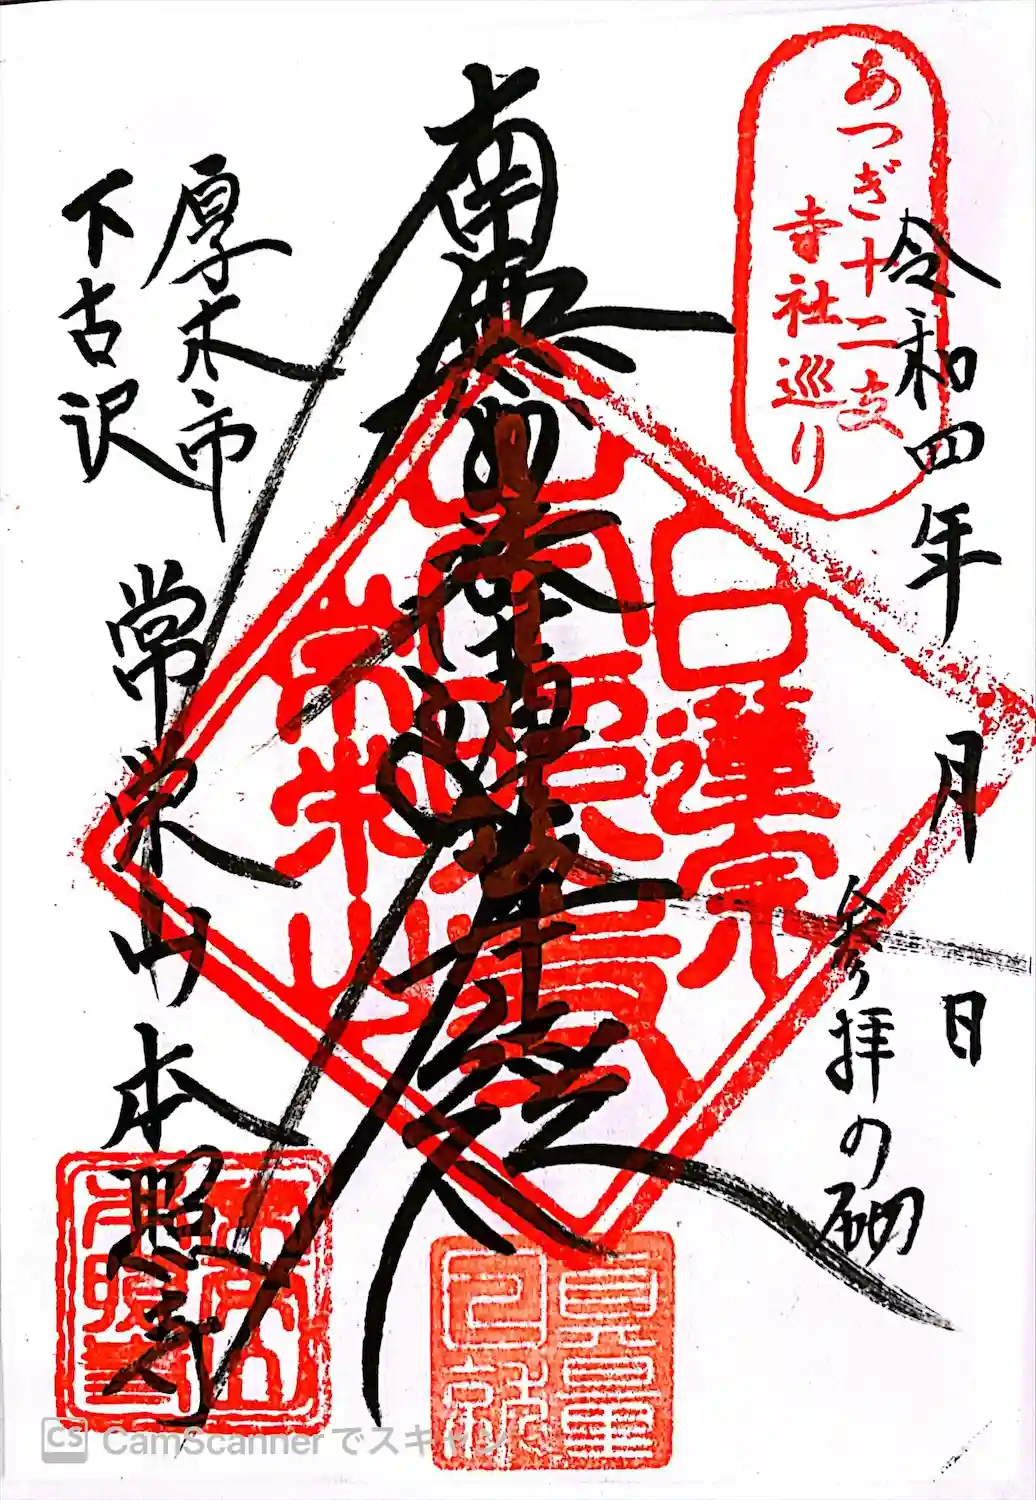 あつぎ十二支
寺社巡り
令和四年 月 日
参拝の砌
南無妙法蓮華経
日蓮宗
本照寺
常栄山
厚木市
下古沢
常栄山本照寺
CamScannerでスキャン